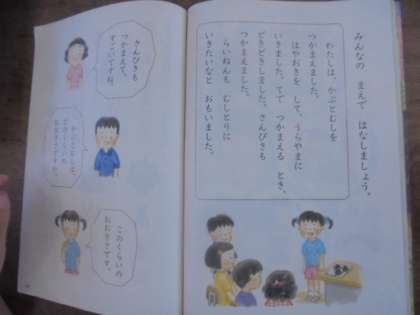 みんなの まえで はなしましょう。
わたしは、かぶとむしを
つかまえました。
はやおきを して、うらやまに
いきました。てで つかまえる とき、
どきどきしました。さんびきも
つかまえました。
らいねんも むしとりに
いきたいなと おもいました。
さんびきも
つかまえて、
すごいですね。
かぶとむしは、
どのくらいの
おおきさですか。
このくらいの
おおきさです。